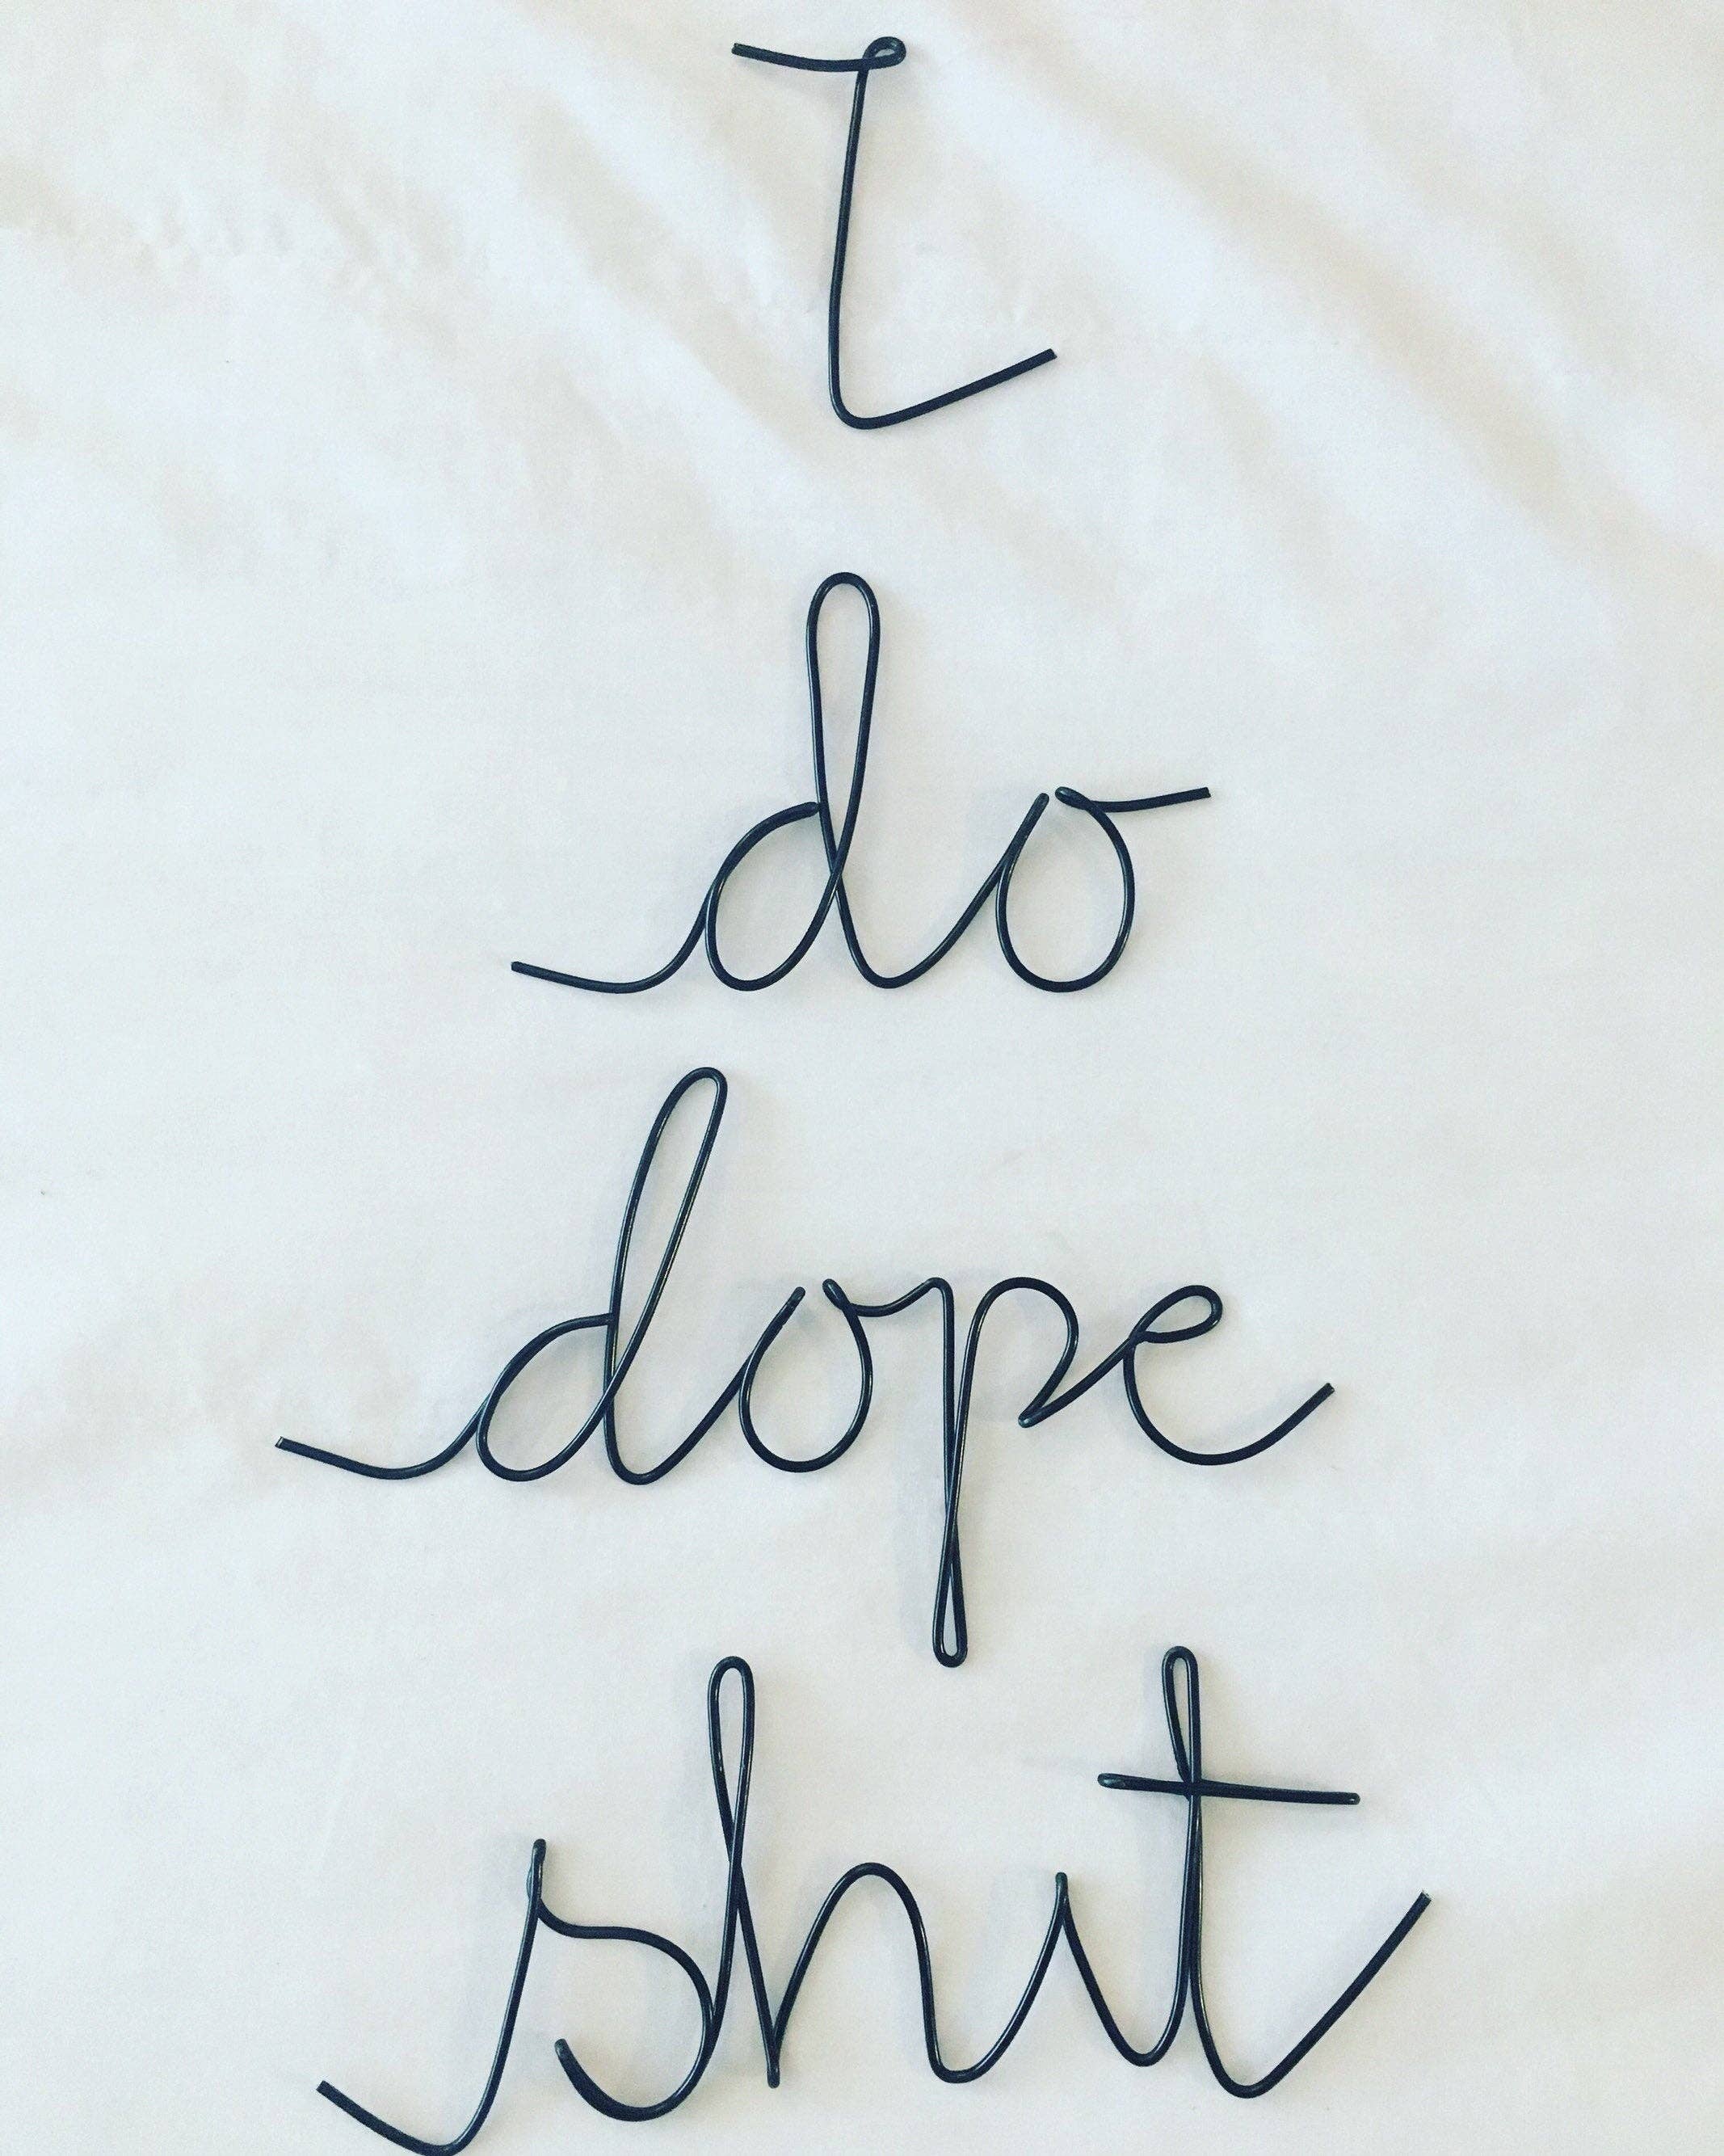 I
do
dope
shit